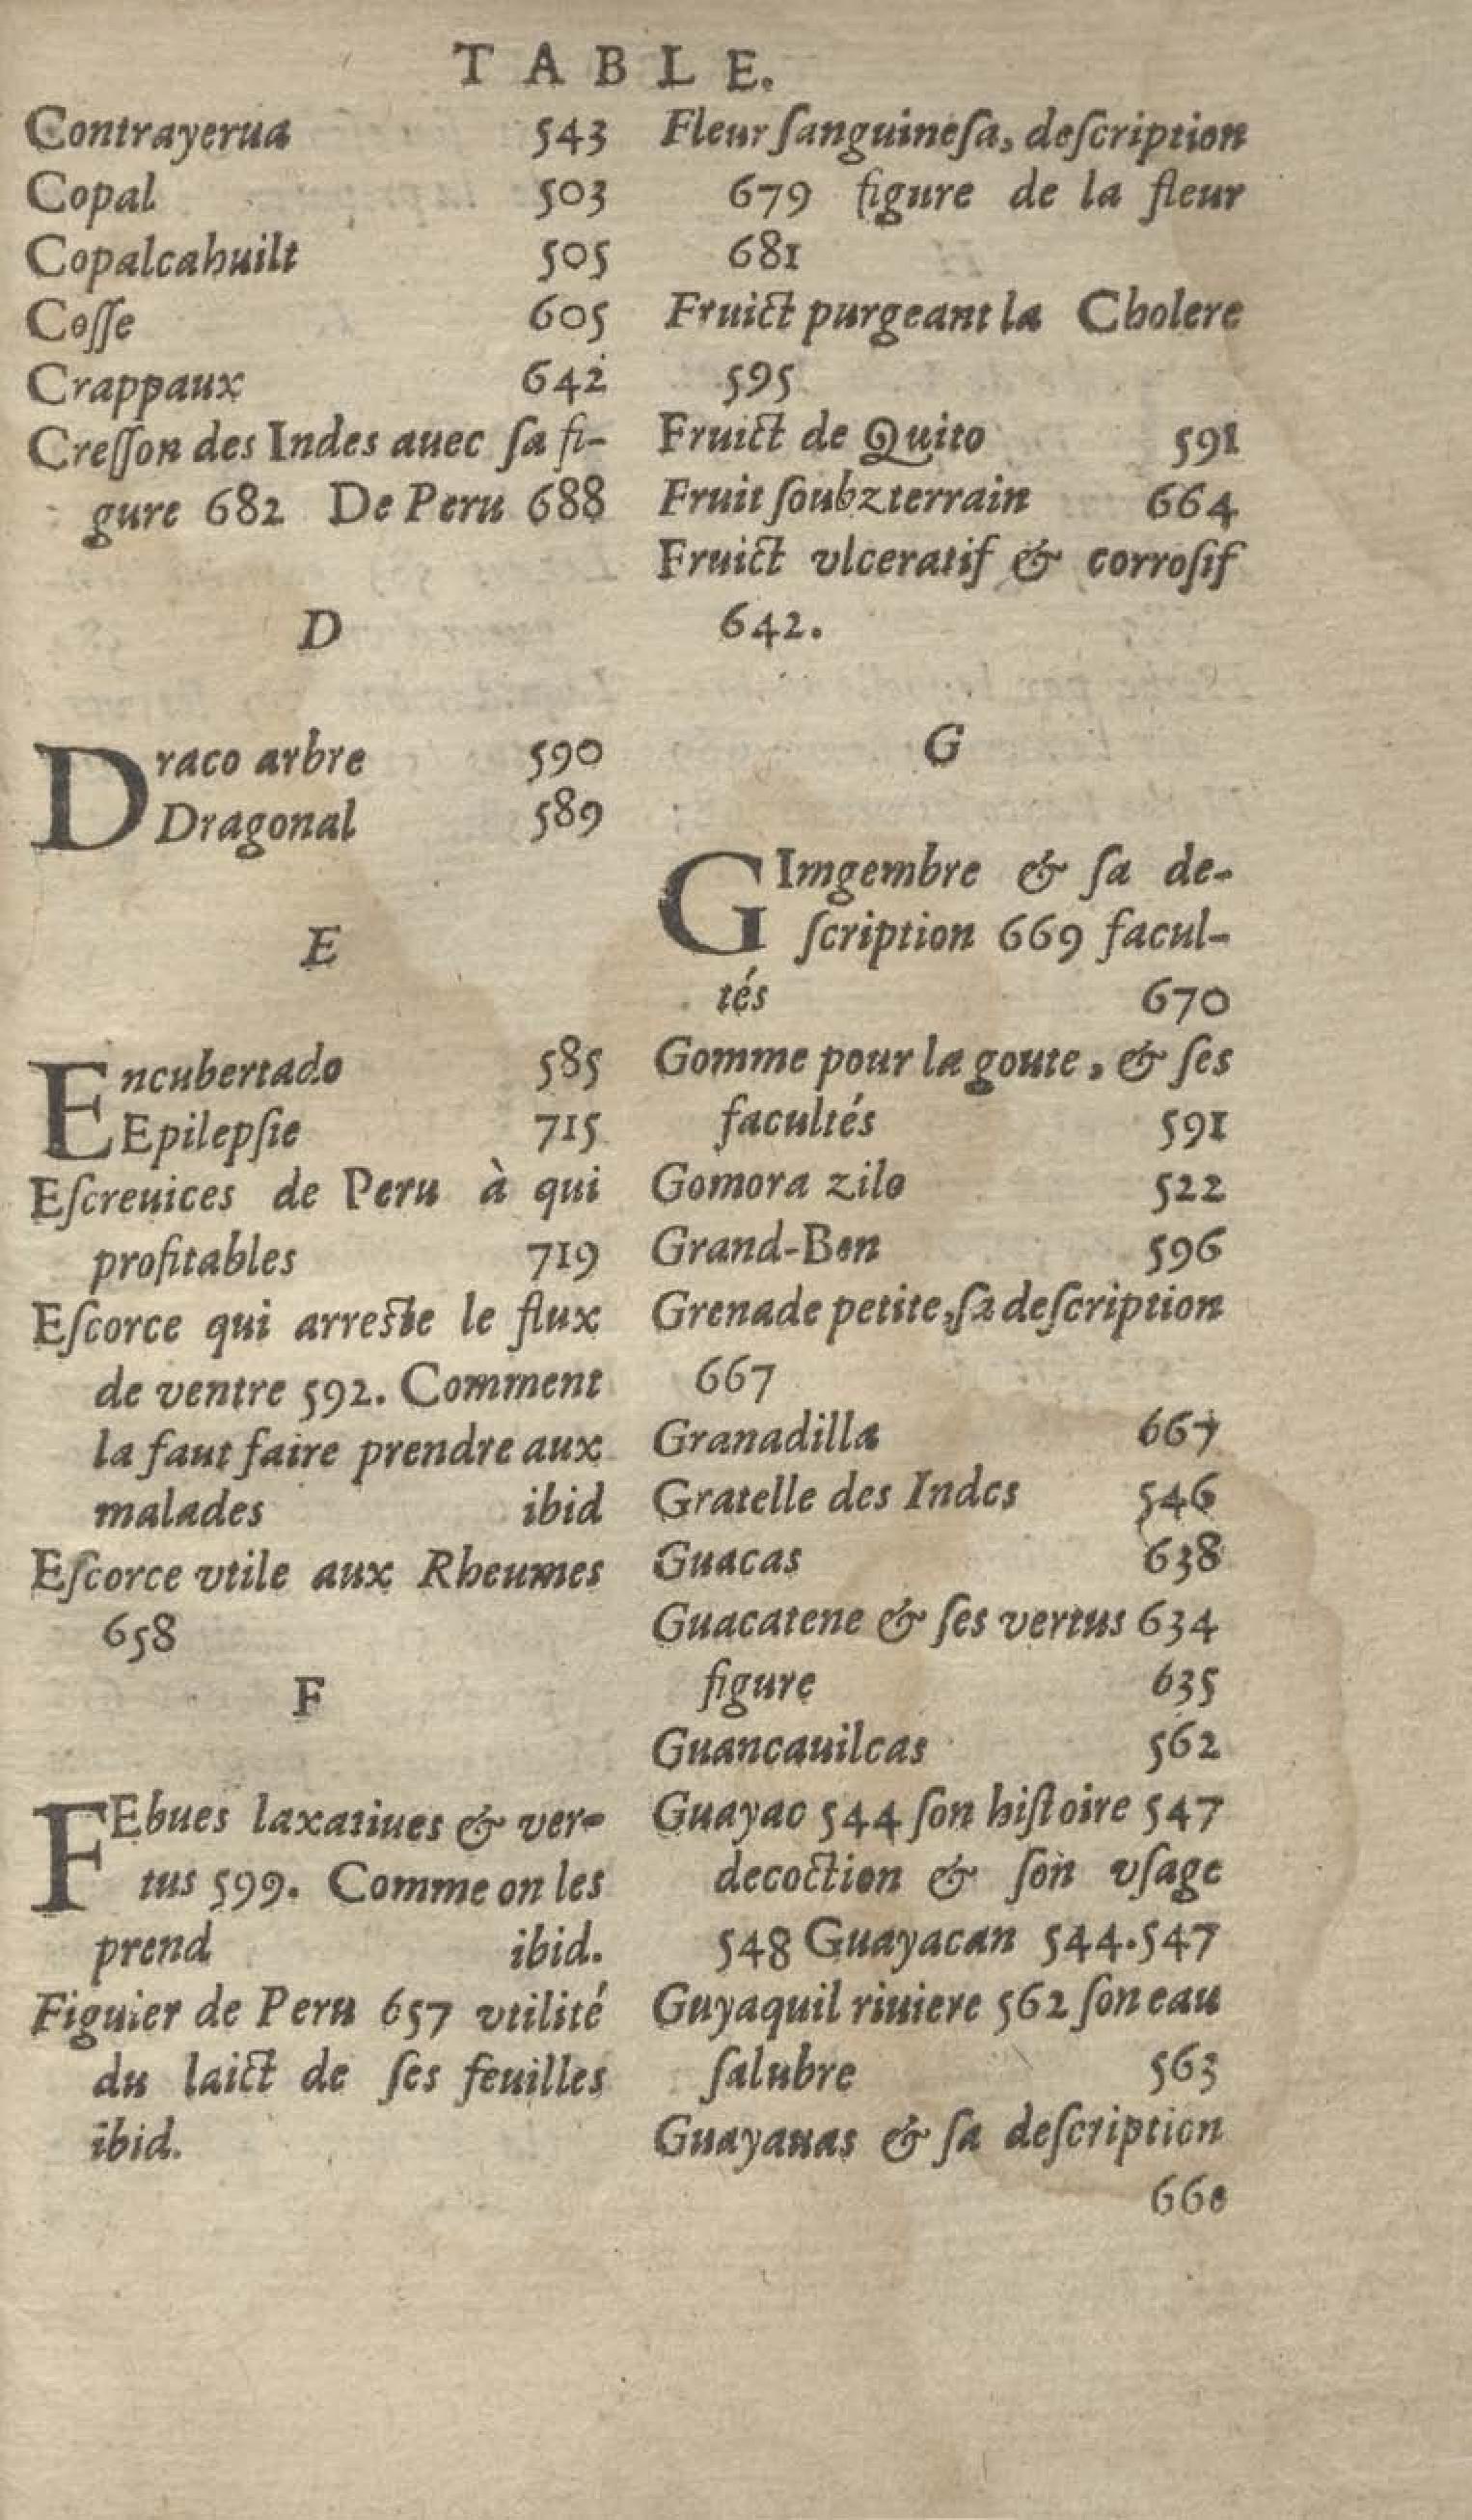 TABLE.
Contrayerua 543
Copal 503
Copalcahuilt 505
Coſſe 605
Crappaux 642
Creſſon des Indes auec ſa fi-
gure 682 De Peru 688
D
Draco arbre 590
Dragonal 589
E
Encubertado 585
Epilepſie 715
Eſcreuices de Peru à qui
profitables 719
Eſcorce qui arreste le flux
de ventre 592. Comment
la faut faire prendre aux
malades ibid
Eſcorce vtile aux Rheumes
658
F
FEbues laxatiues & ver-
tus 599. Comme on les
prend ibid.
Figuier de Peru 657 vtilité
du laict de ſes feuilles
ibid.
Fleur ſanguineſa, deſcription
679 figure de la fleur
681
Fruict purgeant la Cholere
595
Fruict de Quito 591
Fruit ſoubzterrain 664
Fruict vlceratif & corroſif
642.
G
GImgembre & ſa de-
ſcription 669 facul-
tés 670
Gomme pour la goute, & ſes
facultés 591
Gomora zilo 522
Grand-Ben 596
Grenade petite, ſa deſcription
667
Granadilla 667
Gratelle des Indes 546
Guacas 638
Guacatene & ſes vertus 634
figure 635
Guancauilcas 562
Guayac 544 ſon hiſtoire 547
decoction & ſon vſage
548 Guayacan 544.547
Guyaquil riuiere 562 ſon eau
ſalubre 563
Guayauas & ſa deſcription
660